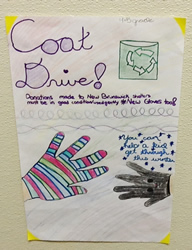 Coat
Drive!
Donations made to New Brunswick shelters
must be in good condition
New Gloves too!
You can
help a
get through
this winter